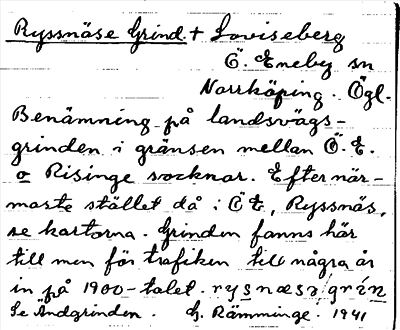 Ryssnäse Grind + Loviseberg
Ö. Eneby sn
Norrköping. Ögl.
Benämning på landsvägs-
grinden i gränsen mellan Ö. E.
o Risinge socknar. Efter när-
maste stället då i ÖE, Ryssnäs,
se kartorna. Grinden fanns här
till men för trafiken till några år
in på 1900-talet. rysnæsə grén
Se Ändgrinden. G. Rämminge. 1941